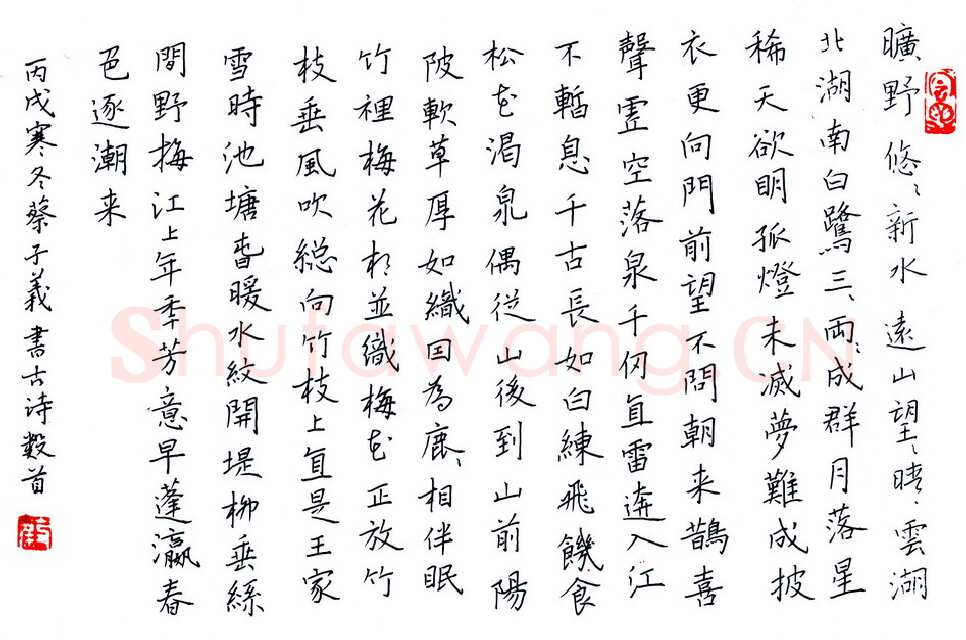 曠野悠〻新水遠山望〻晴〻雲湖
北湖南白鷺三〻兩〻成群月落星
稀天欲明孤燈未滅夢難成披
衣更向門前望不問朝来鵲喜
聲虛空落泉千仞直雷奔入江
不暫息千古長如白練飛饑食
松花渴泉偶従山後到山前陽
陂軟草厚如織囙為鹿〻相伴眠
竹裡梅花相並織梅花正放竹
枝垂風吹総向竹枝上直是王家
雪時池塘春暖水紋開堤柳垂絲
間野梅江上年季芳意早蓬瀛春
色逐潮来
丙戌寒冬蔡子義書古詩數首
Shufawang.CN